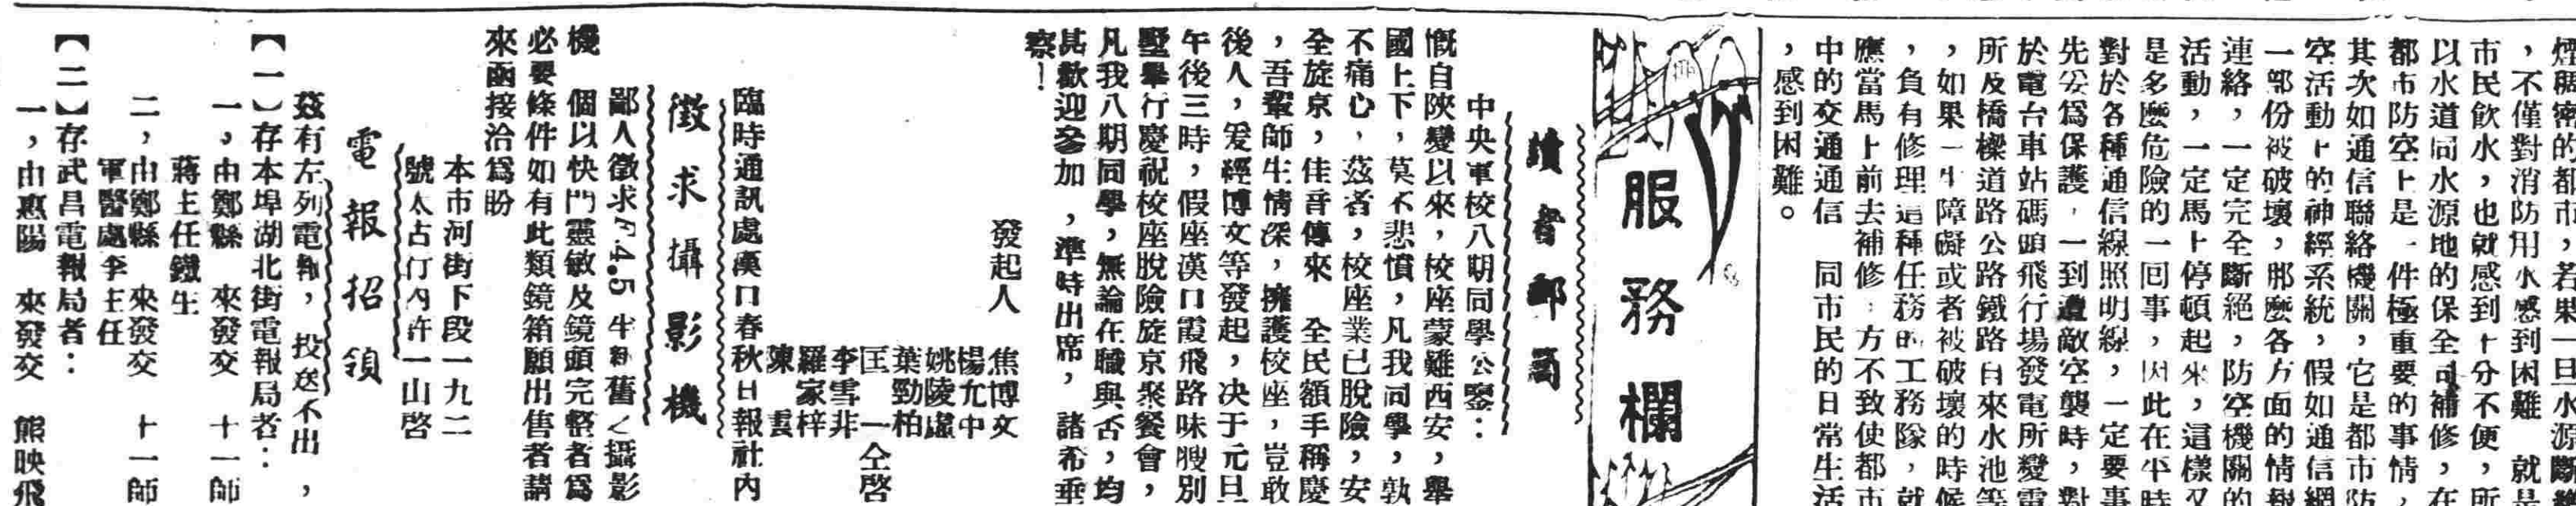 煙稠密的都市，若果一旦水源斷絕
，不僅對消防用水感到困難　就是
市民飲水，也就感到十分不便，所
以水道同水源地的保全司補修，在
都市防空上是一件極重要的事情，
其次如通信聯絡機關，它是都市防
空活動上的神經系統，假如通信網
一部份被破壞，那麼各方面的情報
連絡，一定完全斷絕，防空機關的
活動，一定馬上停頓起來，這樣又
是多麼危險的一回事，因此在平時
對於各種通信線照明線，一定要事
先妥爲保護，一到遭敵空襲時，對
於電台車站碼頭飛行場發電所變電
所及橋樑道路公路鐵路自來水池等
，如果一生障礙或者被破壞的時候
，負有修理這種任務的工務隊，就
應當馬上前去補修，方不致使都市
中的交通通信　同市民的日常生活
，感到困難。
服務欄
讀者郵局
中央軍校八期同學公鑒：
慨自陝變以來，校座蒙難西安，舉
國上下，莫不悲憤，凡我同學，孰
不痛心，茲者，校座業已脫險，安
全旋京，佳音傳來　全民額手稱慶
，吾輩師生情深，擁護校座，豈敢
後人，爰經博文等發起，决于元旦
午後三時，假座漢口霞飛路味腴別
墅舉行慶祝校座脫險旋京聚餐會，
凡我八期同學，無論在職與否，均
甚歡迎參加，準時出席，諸希垂
察！
發起人　焦博文
楊允中
姚陵虛
葉勁柏
匡　一仝啓
李雪非
羅家梓
陳　雲
臨時通訊處漢口春秋日報社內
徵求攝影機
鄙人徵求F4.5半新舊　攝影
機　個以快門靈敏及鏡頭完整者爲
必要條件如有此類鏡箱願出售者請
來函接洽爲盼
本市河街下段一九二
號太古仃內許一山啓
電報招領
茲有左列電報，投送不出，
【一】存本埠湖北街電報局者：
一，由鄭縣　來發交　十一師
蔣主任鐵生
二，由鄭縣　來發交　十一師
軍醫處李主任
【二】存武昌電報局者：
一，由惠陽　來發交　熊映飛